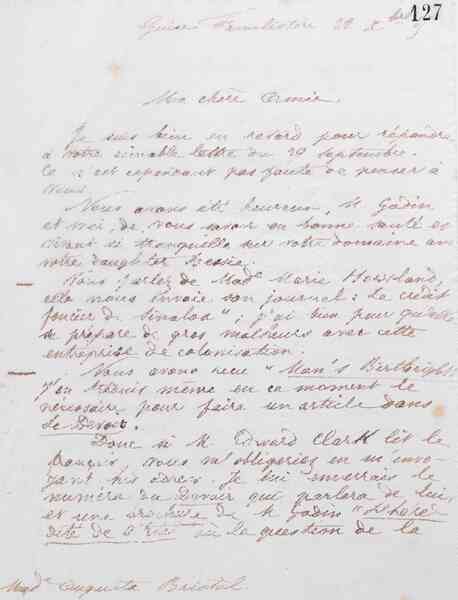 127
Guise Familistère 22 Xbre
Ma chère Amie,
Je suis bien en retard pour répondre
à votre aimable lettre du 29 septembre.
Ce n'est cependant pas faute de penser à
vous.
Nous avons été heureux, M. Godin
et moi, de vous savoir en bonne santé et
vivant si tranquille sur votre domaine avec
votre daughter Bessie.
Vous parlez de Made Marie Howland,
elle nous envoie son journal: Le crédit
foncier de Sinaloa"; j'ai bien peur qu'elle
se prépare de gros malheurs avec cette
entreprise de colonisation.
Nous avons reçu "Man's Birthright".
J'en traduis même en ce moment le
nécessaire pour faire un article dans
Le Devoir.
Donc si M. Edward Clark lit le
français, vous m'obligeriez en m'envo-
yant his adress. Je lui enverrais le
numéro du Devoir qui parlera de lui,
et une brochure de M. Godin "L'héré-
dité de l'Etat où la question de la
Made Augusta Bristol.